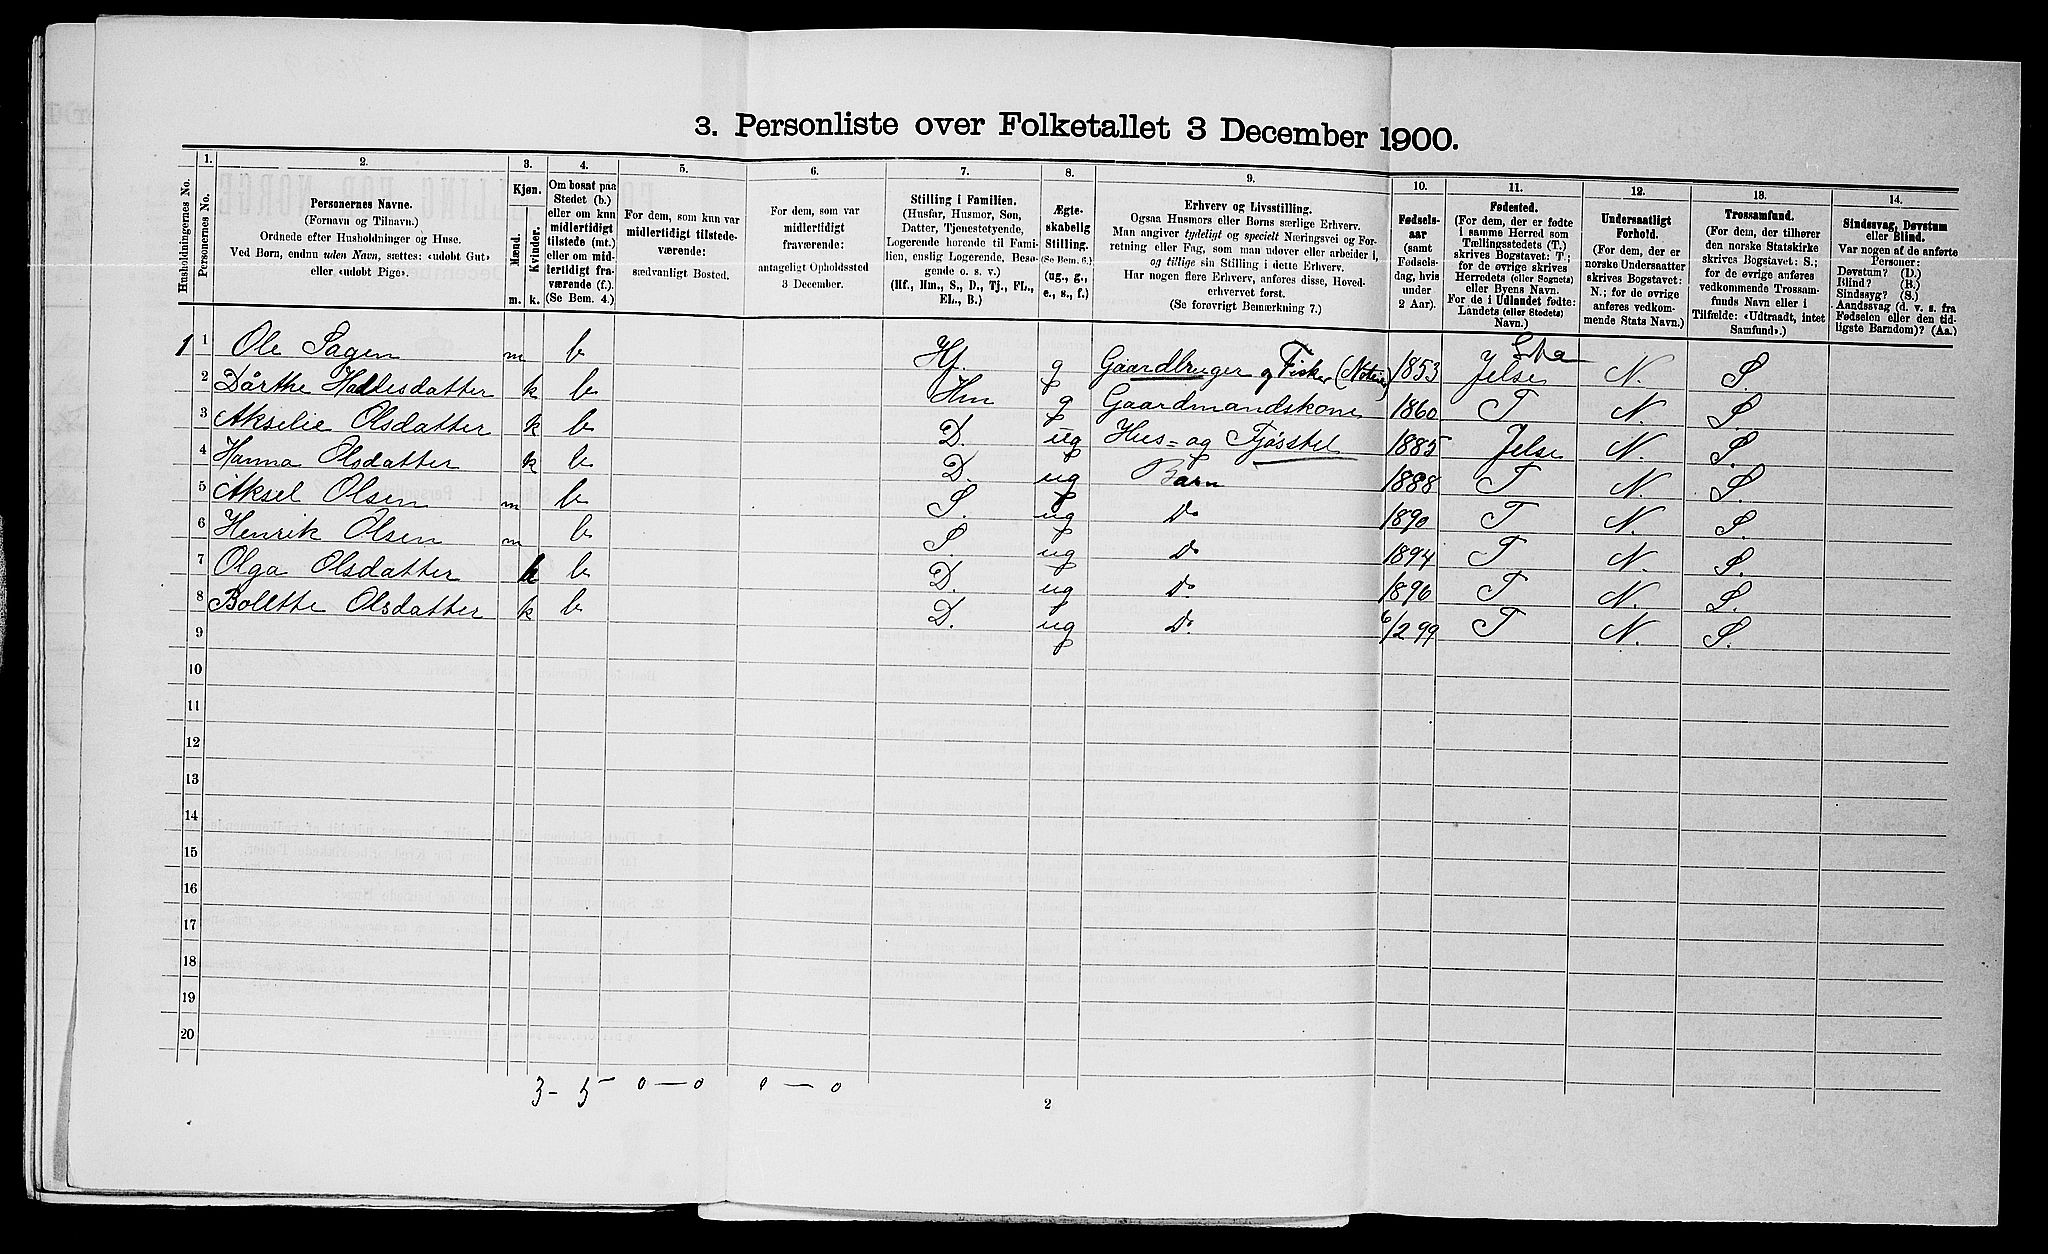 3. Personliste over Folketallet 3 December 1900.
Husholdningernes No.
1.
Personernes No.
2.
Personernes Navne.
(Fornavn og Tilnavn.)
Ordnede efter Husholdninger og Huse.
Ved Børn, endnu uden Navn, sættes: «udøbt Gut»
eller «udøbt Pige».
3.
Kjøn.
Mænd.
Kvinder.
m. k.
4.
Om bosat paa
Stedet (b.)
eller om kun
midlertidigt
tilstede (mt.)
eller om mid-
lertidigt fra-
værende (f.).
(Se Bem. 4.)
5.
For dem, som kun var
midlertidigt tilstede-
værende:
sædvanligt Bosted.
6.
For dem, som var
midlertidigt
fraværende:
antageligt Opholdssted
3 December.
7.
Stilling i Familien.
(Husfar, Husmor, Søn,
Datter, Tjenestetyende,
Logerende hørende til Fami-
lien, enslig Logerende, Besø-
gende o. s. v.)
(Hf., Hm., S., D., Tj., FL.,
EL., B.)
8.
Ægte-
skabelig
Stilling.
(Se Bem. 6.)
(ug., g.,
e., s., f.)
9.
Erhverv og Livsstilling.
Ogsaa Husmors eller Børns særlige Erhverv.
Man angiver tydeligt og specielt Næringsvei og For-
retning eller Fag, som man udøver eller arbeider i,
og tillige sin Stilling i dette Erhverv.
Har nogen flere Erhverv, anføres disse, Hoved-
erhvervet først.
(Se forøvrigt Bemærkning 7.)
10.
Fødsels-
aar
(samt
Fødsels-
dag, hvis
under
2 Aar).
11.
Fødested.
(For dem, der er fødte
i samme Herred som
Tællingsstedets (T.)
skrives Bogstavet: T.;
for de øvrige skrives
Herredets (eller Sognets)
eller Byens Navn.
For de i Udlandet fødte:
Landets (eller Stedets)
Navn.)
12.
Undersaatligt
Forhold.
(For dem, der er
norske Undersaatter
skrives Bogstavet:
N.; for de øvrige
anføres vedkom-
mende Stats Navn.)
13.
Trossamfund.
(For dem, der tilhører
den norske Statskirke
skrives Bogstavet: S.;
for de øvrige anføres
vedkommende Trossam-
funds Navn eller i
Tilfælde: «Udtraadt, intet
Samfund».)
14.
Sindssvag, Døvstum
eller Blind.
Var nogen af de anførte
Personer:
Døvstum? (D.)
Blind? (B.)
Sindssyg? (S.)
Aandssvag (d. v. s. fra
Fødselen eller den tid-
ligste Barndom)? (Aa.)
1 1 Ole Sagen m b Hf. g Gaardbruger og Fisker 1853 Jelse N. S.
2 Dårthe Hallesdatter k b Hm g Gaardmandskone 1860 T N. S.
3 Akselie Olsdatter k b D. ug Hus= og Fjøsstel 1885 Jelse N. S.
4 Hanna Olsdatter k b D. ug Barn 1888 T N. S.
5 Aksel Olsen m b S. ug Do 1890 T N. S.
6 Henrik Olsen m b S. ug Do 1894 T N. S.
7 Olga Olsdatter k b D. ug Do 1896 T N. S.
8 Bolette Olsdatter k b D. ug Do 6/2 99 T N. S.
9
10
11
12
13
14
15
16
17
18
19
20
3 - 5 0 — 0 0 — 0
2